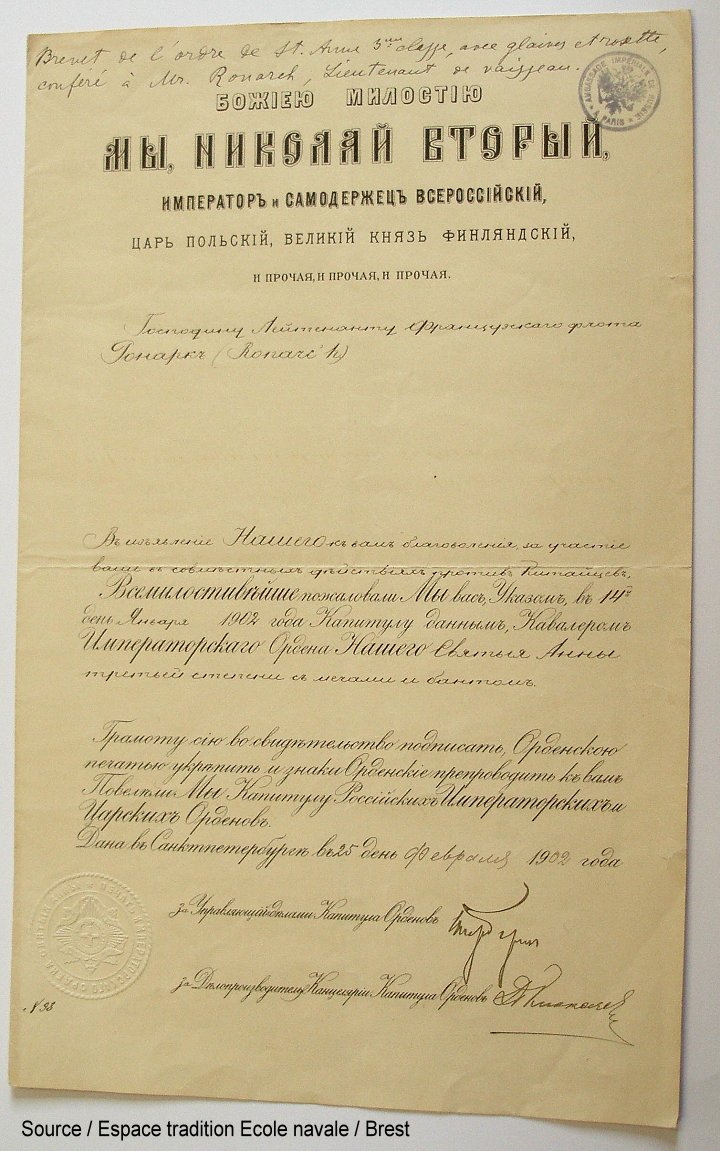 Brevet de l'ordre de St. Anne 3me classe, avec glaives et rosette,
conféré à Mr. Ronarch, Lieutenant de vaisseau.
AMBASSADE IMPÉRIALE DE RUSSIE
A PARIS
БОЖІЕЮ МИЛОСТІЮ
МЫ, НИКОЛАЙ ВТОРЫЙ,
ИМПЕРАТОРЪ и САМОДЕРЖЕЦЪ ВСЕРОССІЙСКІЙ,
ЦАРЬ ПОЛЬСКІЙ, ВЕЛИКІЙ КНЯЗЬ ФИНЛЯНДСКІЙ,
И ПРОЧАЯ, И ПРОЧАЯ, И ПРОЧАЯ.
Господину Лейтенанту Французскаго флота
Ронаркъ (Ronarc'h)
Въ изъявленіе Нашего къ вамъ благоволенія, за участіе
ваше въ совмѣстныхъ дѣйствіяхъ противъ Китайцевъ,
Всемилостивѣйше пожаловали Мы васъ, Указомъ, въ 14й
день Января 1902 года Капитулу даннымъ, Кавалеромъ
Императорскаго Ордена Нашего Святыя Анны
третьей степени съ мечами и бантомъ.
Грамоту сію во свидѣтельство подписать, Орденскою
печатью укрѣпить и знаки Орденскіе препроводить къ вамъ
Повелѣли Мы Капитулу Россійскихъ Императорскихъ и
Царскихъ Орденовъ.
Дана въ Санктпетербургѣ въ 25 день Февраля 1902 года
За Управляющаго дѣлами Капитула Орденовъ
За Дѣлопроизводителя Канцеляріи Капитула Орденовъ
№ 38
Source / Espace tradition Ecole navale / Brest